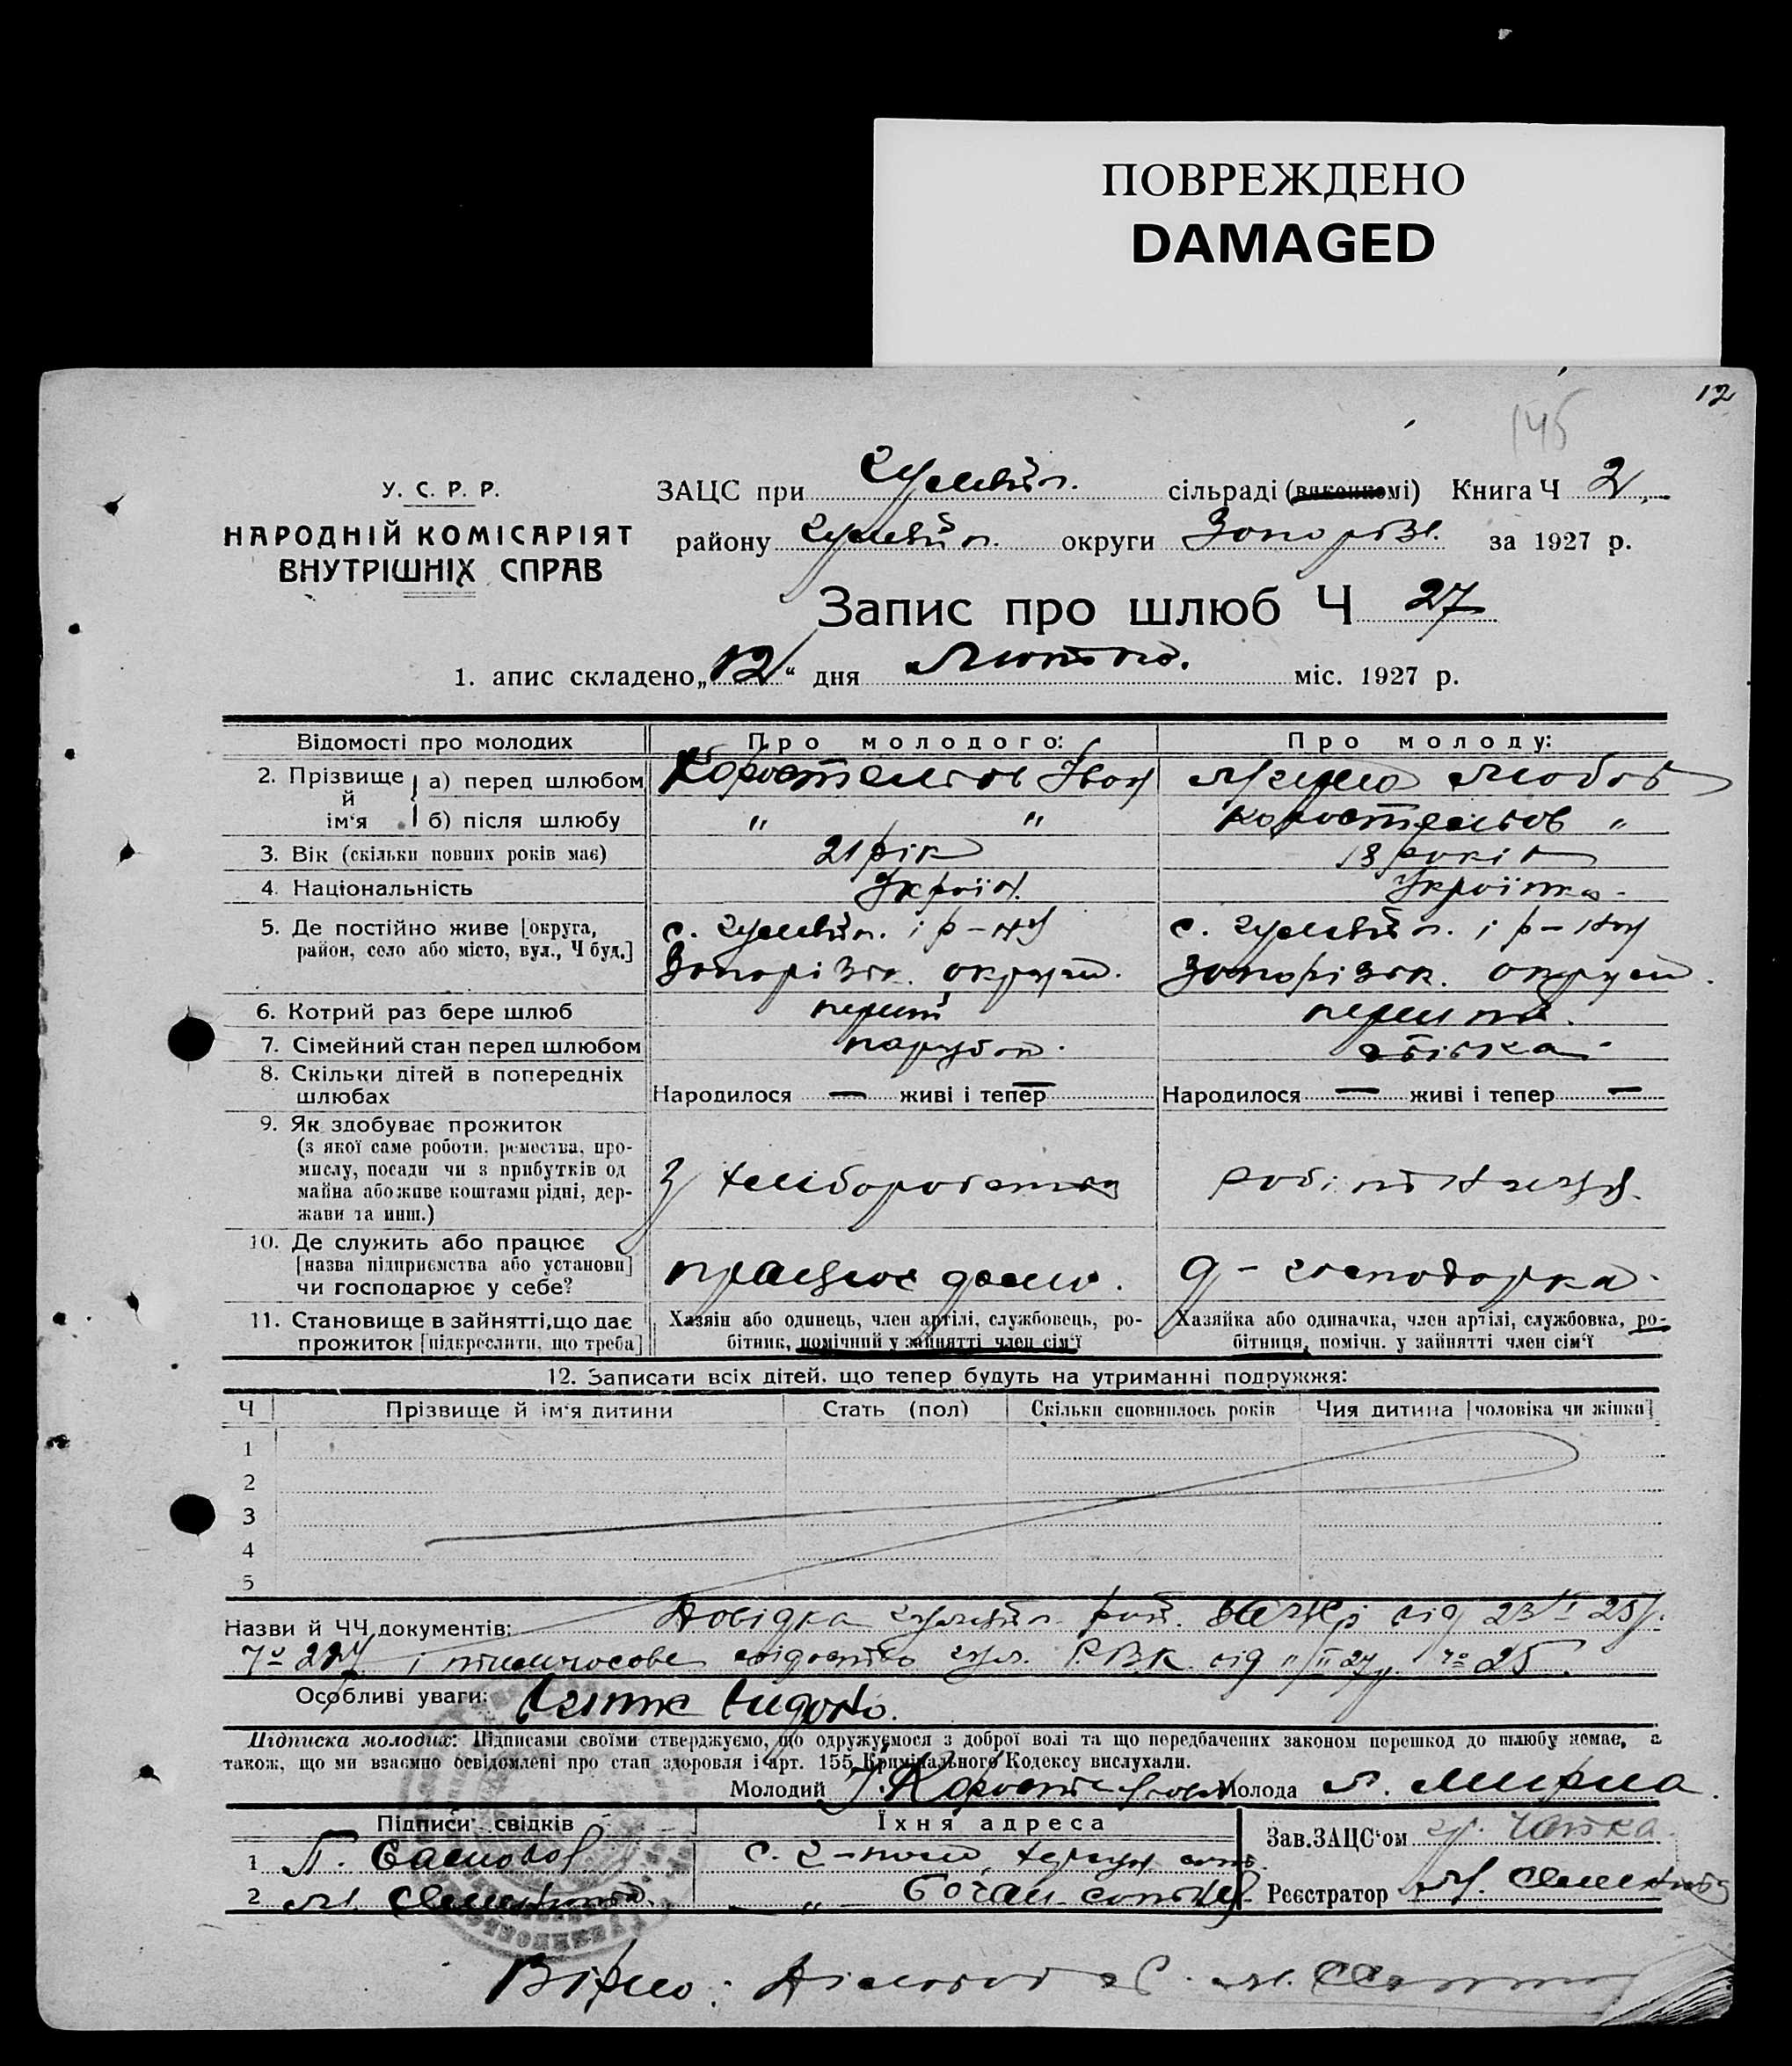 ПОВРЕЖДЕНО
DAMAGED
12
145
У. С. Р. Р.
НАРОДНІЙ КОМІСАРІЯТ
ВНУТРІШНІХ СПРАВ
ЗАЦС при Гуляйп. сільраді (виконкомі) Книга Ч 2
району Гуляйп. округи Запоріз. за 1927 р.
Запис про шлюб Ч 27
1. апис складено „12“ дня Лютого. міс. 1927 р.
Відомості про молодих
Про молодого:
Про молоду:
2. Прізвище й ім'я
а) перед шлюбом
Коростельов Іван
Любов
б) після шлюбу
" "
Коростельов "
3. Вік (скільки повних років має)
21 рік
18 років
4. Національність
Україн.
Українка
5. Де постійно живе [округа, район, село або місто, вул., Ч буд.]
с. Гуляйп. і р-ну
Запорізьк. округи.
с. Гуляйп. і р-ну
Запорізьк. округи.
6. Котрий раз бере шлюб
перший
перший.
7. Сімейний стан перед шлюбом
парубок.
дівка
8. Скільки дітей в попередніх шлюбах
Народилося — живі і тепер —
Народилося — живі і тепер —
9. Як здобуває прожиток
(з якої саме роботи, ремества, промислу, посади чи з прибутків од майна або живе коштами рідні, держави та инш.)
З хліборобства
10. Де служить або працює
[назва підприємства або установи]
чи господарює у себе?
працює дома.
д-господарка.
11. Становище в зайнятті, що дає прожиток [підкреслити, що треба]
Хазяїн або одинець, член артілі, службовець, робітник, помічний у зайнятті член сім'ї
Хазяйка або одиначка, член артілі, службовка, робітниця, помічн. у зайнятті член сім'ї
12. Записати всіх дітей, що тепер будуть на утриманні подружжя:
Ч Прізвище й ім'я дитини Стать (пол) Скільки сповнилось років Чия дитина [чоловіка чи жінки]
1
2
3
4
5
Назви й ЧЧ документів: Довідка Гуляйп. рай. від 23
і тимчасове свідоцтво Гул. Р.В.К. від 11/II 27 р. № 25.
Особливі уваги: видано.
Підписка молодих: Підписами своїми стверджуємо, що одружуємося з доброї волі та що передбачених законом перешкод до шлюбу немає, а
також, що ми взаємно освідомлені про стан здоровля і арт. 155 Кримінального Кодексу вислухали.
Молодий І. Коростельов Молода Л.
Підписи свідків
Їхня адреса
1 П.
с. Г-поле,
2 М.
"
Зав. ЗАЦС'ом
Реєстратор М.
Вірно: Діловод